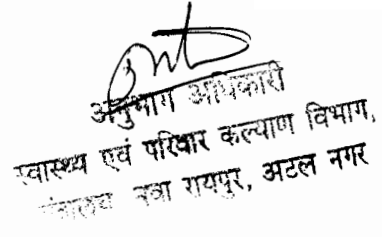 अनुभाग अधिकारी
स्वास्थ्य एवं परिवार कल्याण विभाग,
मंत्रालय नवा रायपुर, अटल नगर